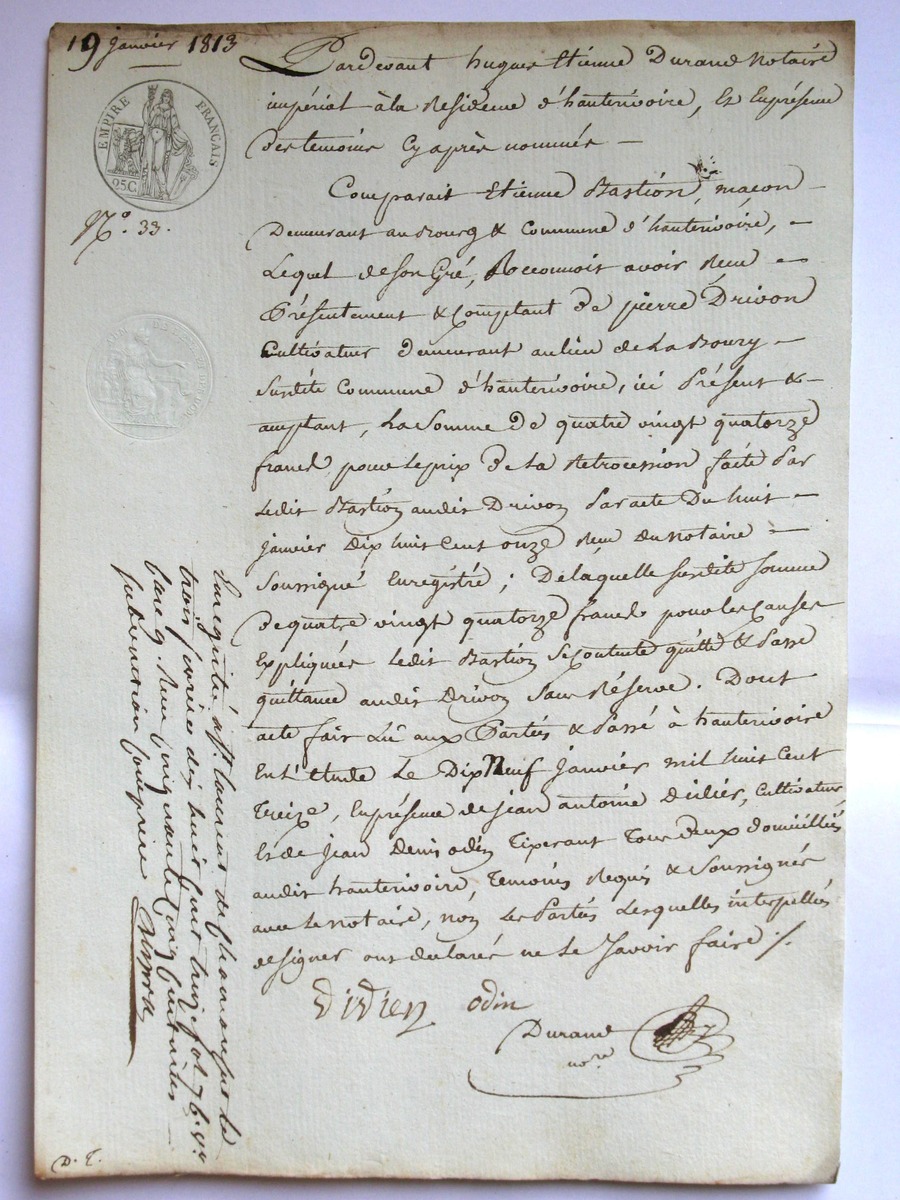 19 janvier 1813
EMPIRE FRANÇAIS
25C.
N.o 33.
Pardevant hugues Etienne Durand Notaire
impérial à la Residence d'hauterivoire, Et Enprésence
des temoins Cyaprès nommés —
Comparait Etienne Bastion, maçon —
Demeurant au Bourg & Commune d'hauterivoire, —
Lequel de son Gré, Reconnoit avoir Reçu —
Présentement & Comptant de pierre Drivon
Cultivateur demeurant au lieu de La Boury —
Susdite Commune d'hauterivoire, ici Présent & —
acceptant, La Somme de quatre vingt quatorze
francs pour le prix de La Retrocession faite Par
Ledit Bastion audit Drivon Par acte Du huit —
janvier Dix huit Cent onze Reçu du notaire —
Soussigné Enregistré ; De laquelle susdite somme
de quatre vingt quatorze francs pour les Causes
Expliquées Ledit Bastion se Contente quitte & Passe
quittance audit Drivon Sans Réserve. Dont
acte fait Lû aux Parties & Passé à hauterivoire
En L'étude Le Dix Neuf janvier mil huit Cent
Treize, Enprésence de jean antoine Didier, Cultivateur
Et de jean Denis odin Tisserant Tous deux domiciliés
audit hauterivoire, Temoins Requis & Soussignés
avec le notaire, non Les Parties Lesquelles interpellés
de signer ont déclarés ne Le Savoir faire ./.
Didier odin
Durand
no.re
Enregistré à St. Laurent de chamousset le
trois fevrier dix huit cent treize fol 76 v.o
case 9. Reçu cinquante cinq centimes
subvention comprise
D. T.